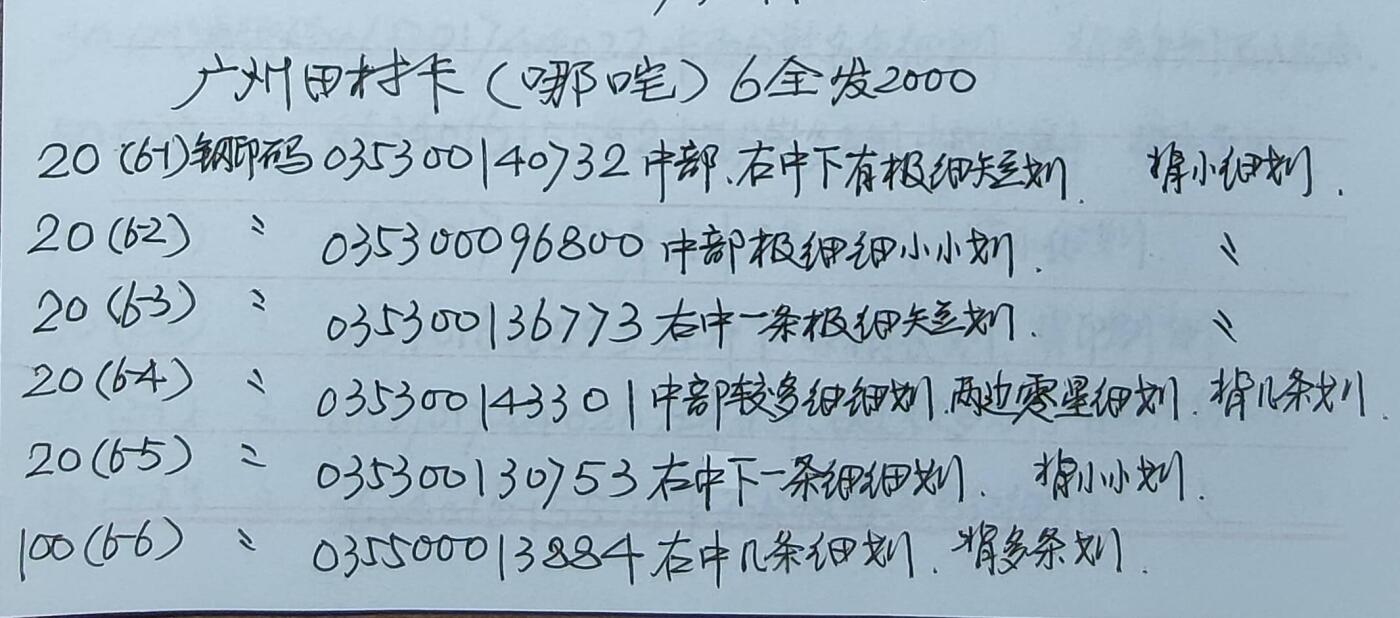 广州田村卡（哪吒）6全发2000
20（6-1）钢印码 035300140732 中部、右中下有极细短划. 背小细划.
20（6-2） 〃 035300096800 中部极细细小小划. 〃
20（6-3） 〃 035300136773 右中一条极细短划. 〃
20（6-4） 〃 035300143301 中部较多细细划.两边零星细划. 背几条划.
20（6-5） 〃 035300130753 右中下一条细细划. 背小小划.
100（6-6） 〃 035500013884 右中几条细划. 背多条划.